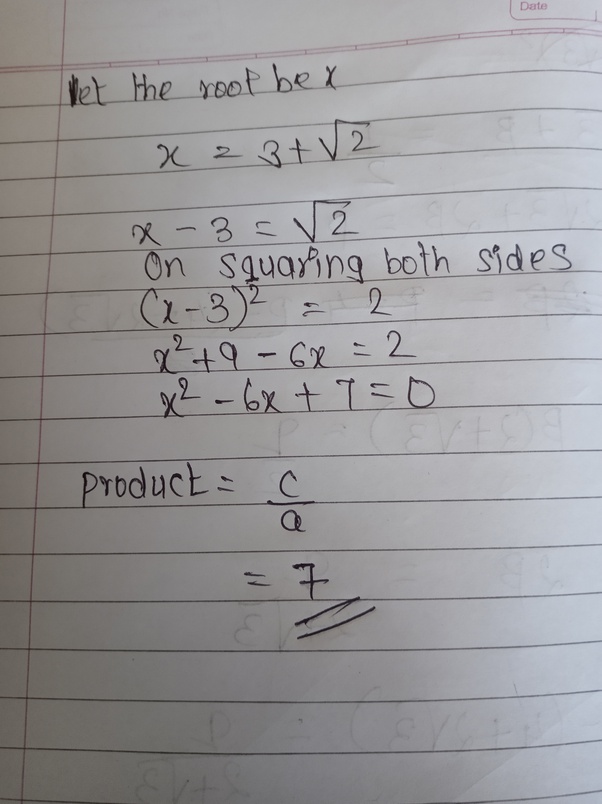 Date
let the root be x
x = 3+√2
x - 3 = √2
On squaring both sides
(x-3)² = 2
x²+9 - 6x = 2
x² - 6x + 7 = 0
product = c/a
= 7